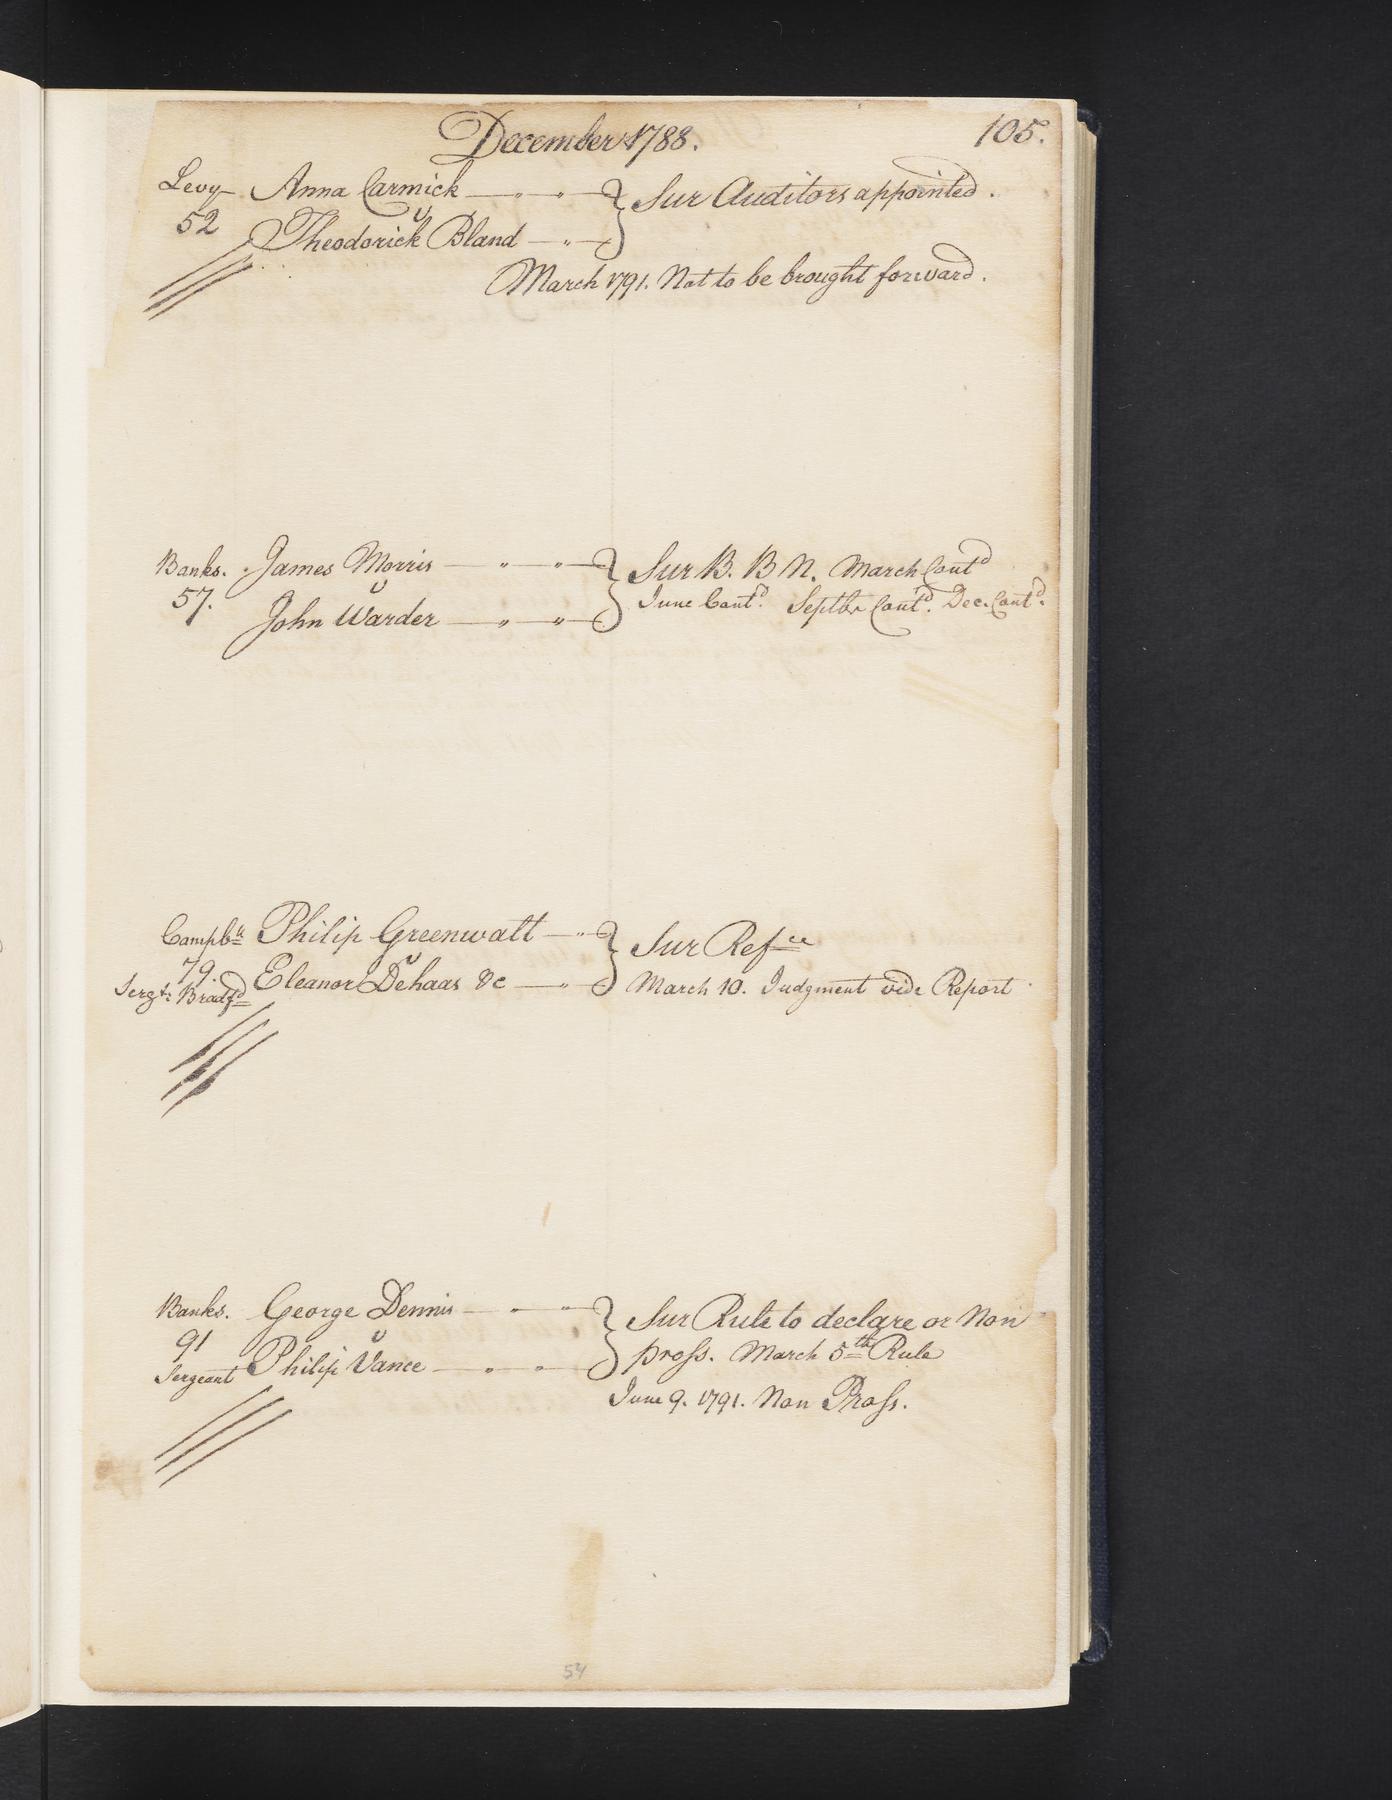 December 1788.
105.
Levy Anna Carmick Sur Auditors appointed.
v
52 Theodorick Bland
March 1791. Not to be brought forward.
Banks. James Morris Sur B. B N. March Contd
v
57. John Warder June Contd. Septbr Contd. Dec. Contd.
Campbll Philip Greenwalt Sur Refce
79. v
Sergt & Bradfd Eleanor Dehaas &c March 10. Judgment vide Report
Banks. George Dennis Sur Rule to declare or Non
91 v
Sergeant Philip Vance pross. March 5th Rule
June 9. 1791. Non Pross.
54